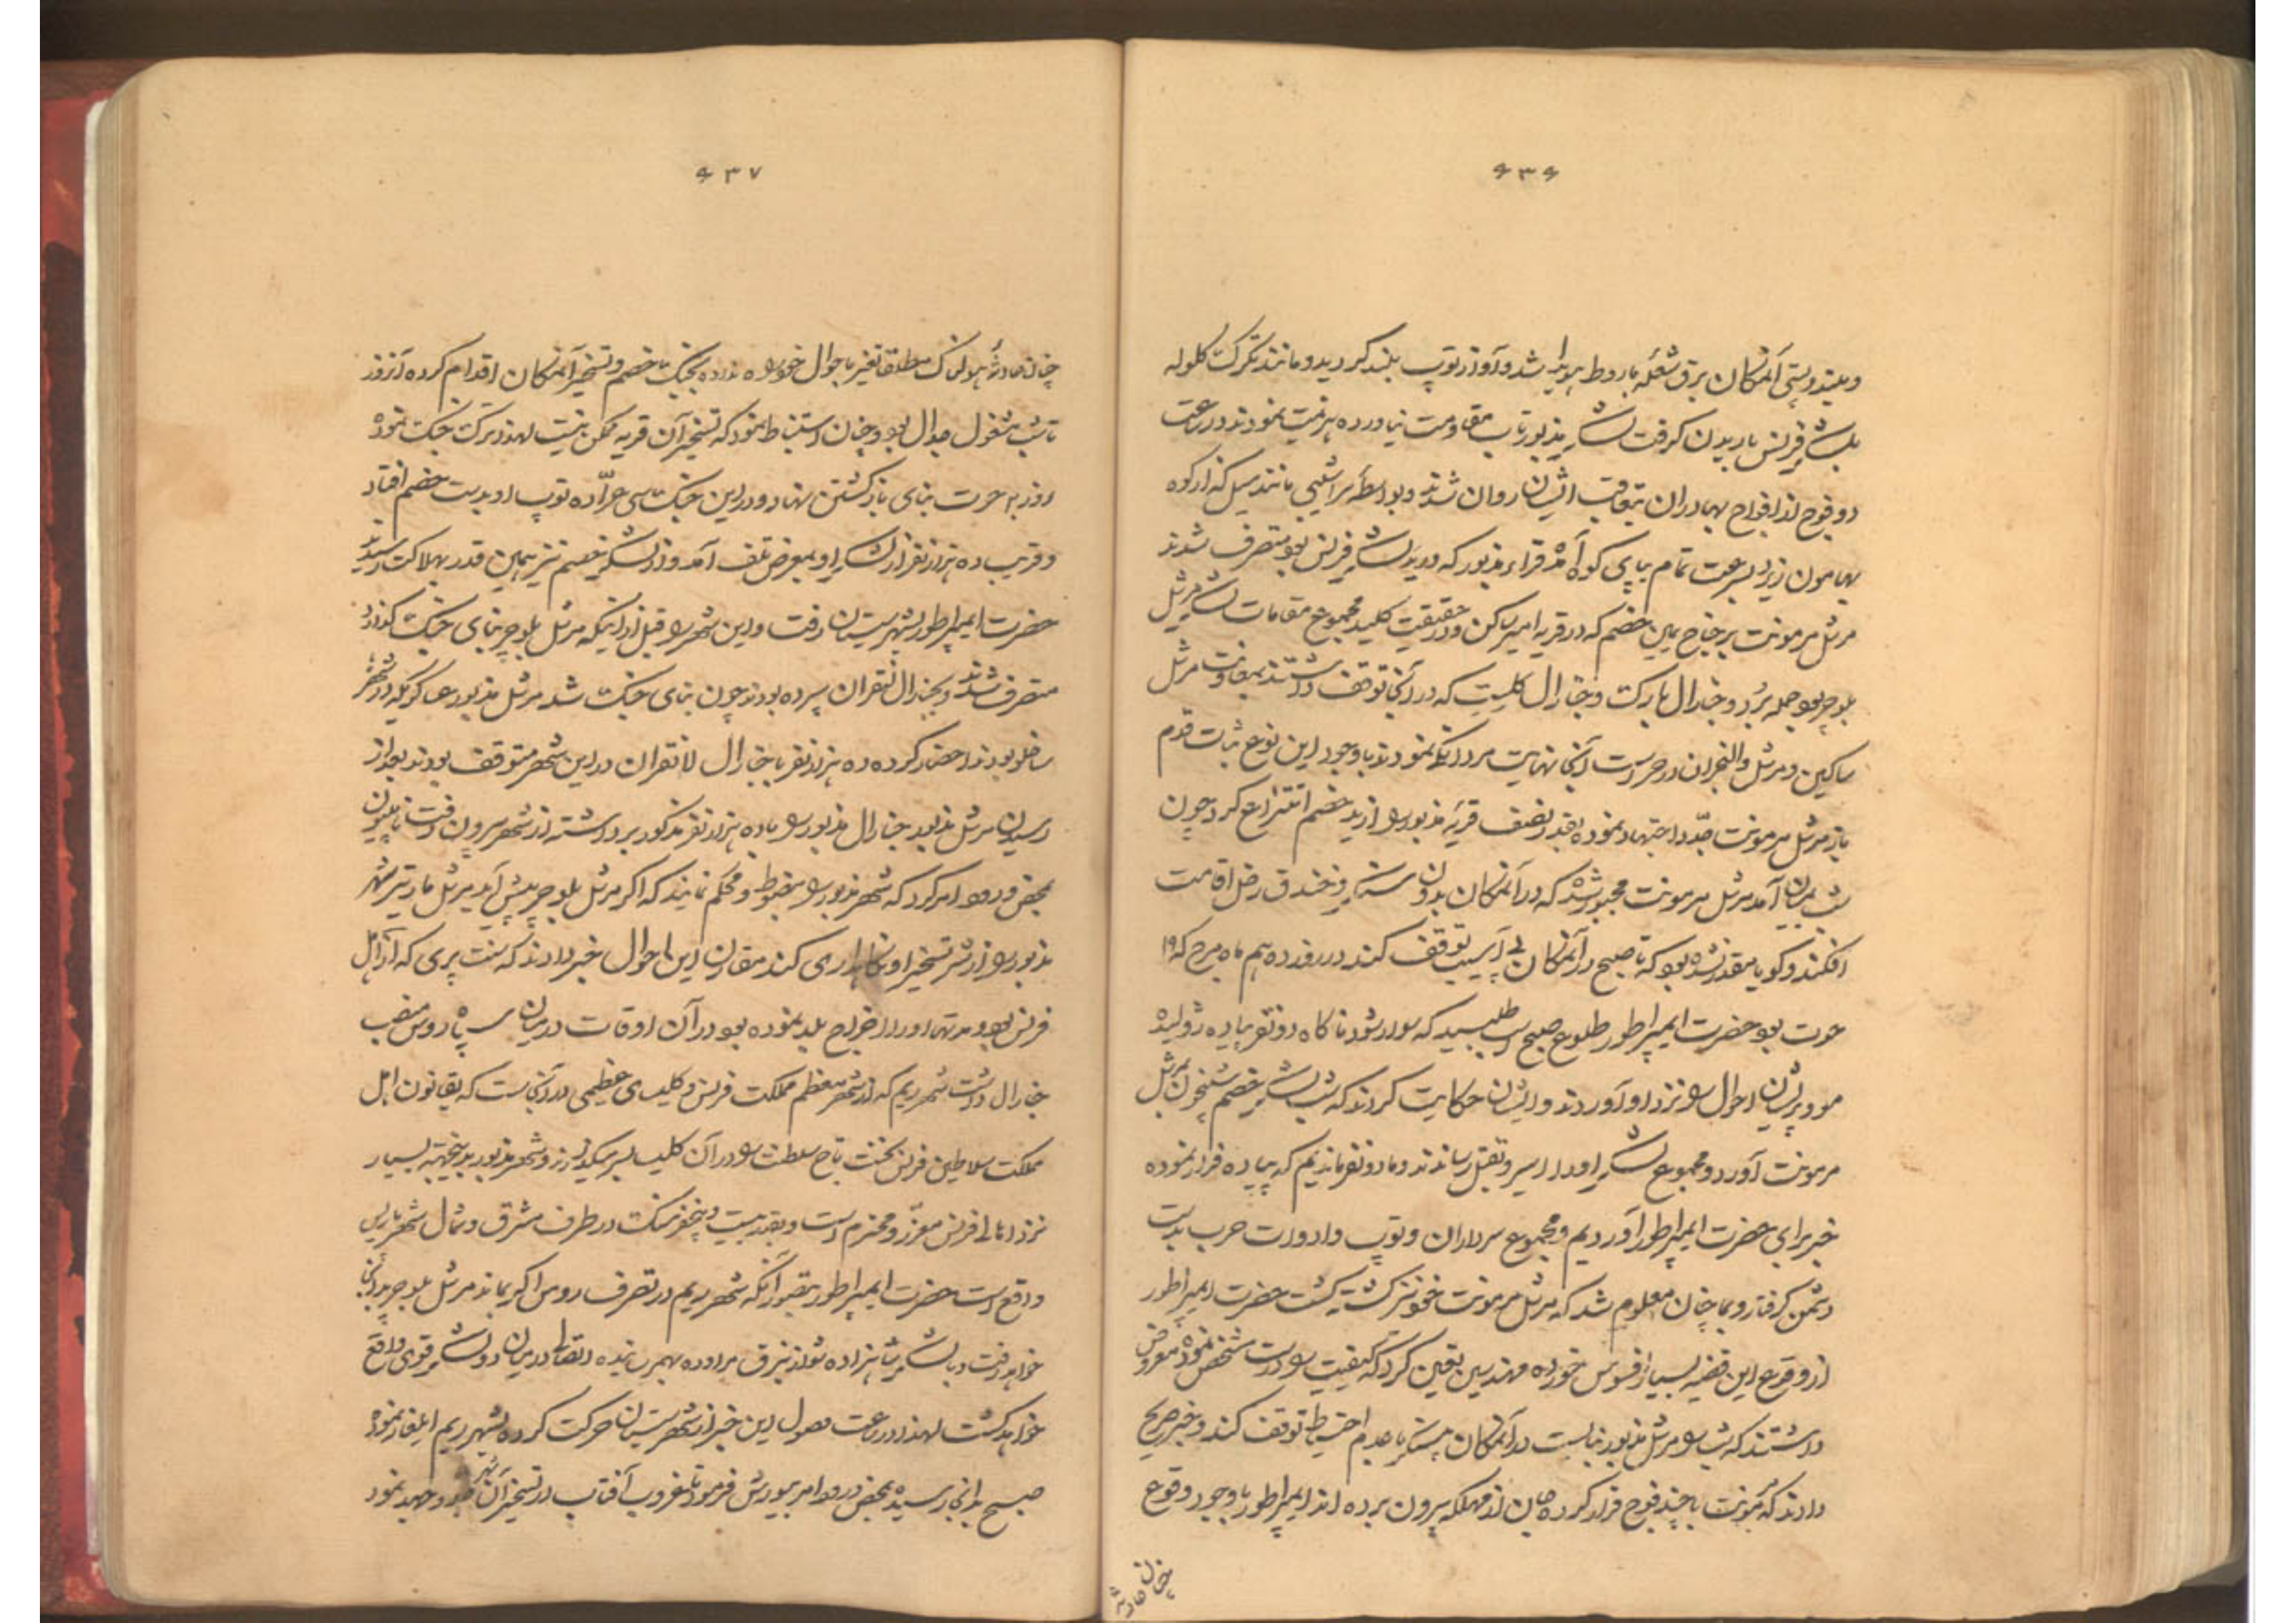 ۶۳۶
و بلندی و پستی آنمکان برق شعله باروط هویدا شد و آواز توپ بلند گردید و مانند تگرگ گلوله
بلشکر فرنس باریدن گرفت لشکر مذبور تاب مقاومت نیاورده هزیمت نمودند در ساعت
دو فوج از افواج بهادران بتعاقب ایشان روان شدند و بواسطه سراشیبی مانند سیل که از کوه
بهامون ریزد بسرعت تمام بپای کوه آمده قراء مذبور که در ید لشکر فرنس بود متصرف شدند
مرشل مرمونت بر جناح یمین خصم که در قریه امیر ساکن و در حقیقت کلید مجموع مقامات لشکر مرشل
بلوچر بود حمله برد و جنارال یارک و جنارال کلیست که در آنجا توقف داشتند بمعاونت مرشل
ساکین و مرشل والنجران در حراست آنجا نهایت مردانگی نمودند با وجود این نوع ثبات قدم
باز مرشل مرمونت جد و اجتهاد نموده بقدر نصف قریه مذبور را از ید خصم انتزاع کرد چون
شب بمیان آمد مرشل مرمونت مجبور شد که در آنمکان بدون سنگر و خندق رحل اقامت
افکند و گویا معتقد شده بود که تا صبح در آنمکان بی آسیب توقف کند در روز دهم ماه مرچ که ۱۹
حوت بود حضرت ایمپراطور طلوع صبح اسب طلبید که سوار شود ناگاه دو نفر پیاده ژولیده
مو و پریشان احوال را نزد او آوردند و ایشان حکایت کردند که شب لشکر خصم شبیخون بمرشل
مرمونت آورد و مجموع لشکر او را اسیر و بقتل رساندند و ما دو نفر ماندیم که پیاده فرار نموده
خبر برای حضرت ایمپراطور آوردیم و مجموع سرداران و توپ و ادوات حرب بدست
دشمن گرفتار و بما چنان معلوم شد که مرشل مرمونت خود نیز کشته گشت حضرت ایمپراطور
از وقوع این قضیه بسیار افسوس خورده مهندسین تعیین کرد که کیفیت را درست مشخص نموده معروض
داشتند که شب را مرشل مذبور نبایست در آنمکان بی سنگر با عدم احتیاط توقف کند و خبر صریح
دادند که مرمونت با چند فوج فرار کرده جان از مهلکه بیرون برده اند ایمپراطور با وجود وقوع
چنان حادثه
۶۳۷
چنان حادثه هولناک مطلقا تغییر باحوال خود راه نداده بجنگ با خصم و تسخیر آنمکان اقدام کرده آنروز
تا شب مشغول جدال بود و چنان استنباط نمود که تسخیر آن قریه ممکن نیست لهذا ترک جنگ نموده
روز ۲۰ حوت بنای بازگشتن نهاد و در این جنگ سی عراده توپ او بدست خصم افتاد
و قریب ده هزار نفر از لشکر او بمعرض تلف آمد و از لشکر خصم نیز بهمین قدر بهلاکت رسید
حضرت ایمپراطور بشهر سیسان رفت و این شهر را قبل از اینکه مرشل بلوچر بنای جنگ گذارد
متصرف شدند و بجنرال لانقران سپرده بودند چون بنای جنگ شد مرشل مذبور عساکریکه در شهر
ساخلو بودند احضار کرده ده هزار نفر با جنارال لانقران در این شهر متوقف بودند بعد از
رسیدن مرشل مذبور جنارال مذبور را با ده هزار نفر مذکور برداشته از شهر بیرون رفت ناپلیون
بمحض ورود امر کرد که شهر مذبور را مضبوط و محکم نمایند که اگر مرشل بلوچر پیش آید مرشل مارتیر شهر
مذبور را از شر تسخیر او نگاهداری کند مقارن این احوال خبر دادند که سنت پری که از اهل
فرنس بود و مدتها او را اخراج بلد نموده بود در آن اوقات در میان سپاه روس منصب
جنارال داشت شهر ریم که از شهر معظم مملکت فرنس و کلیسای عظیمی در آنجاست که بقانون اهل
مملکت سلاطین فرنس نخست تاج سلطنت را در آن کلیسا بسر میگذارند و شهر مذبور بدینجهة بسیار
نزد اهالی فرنس معزز و محترم است و بقدر بیست و پنج فرسنگ در طرف مشرق و شمال شهر پاریس
واقع است حضرت ایمپراطور بتصور آنکه شهر ریم در تصرف روس اگر بماند مرشل بلوچر بدانجا
خواهد رفت و با لشکر شاهزاده شوارزنبرق مراوده بهم رسانیده اتصالی در میان دو لشکر قوی واقع
خواهد گشت لهذا در ساعت وصول این خبر از شهر سیسان حرکت کرده بشهر ریم ایلغار نموده
صبح بدانجا رسیده بمحض ورود امر بیورش فرمود تا غروب آفتاب در تسخیر آن شهر جد و جهد نمود